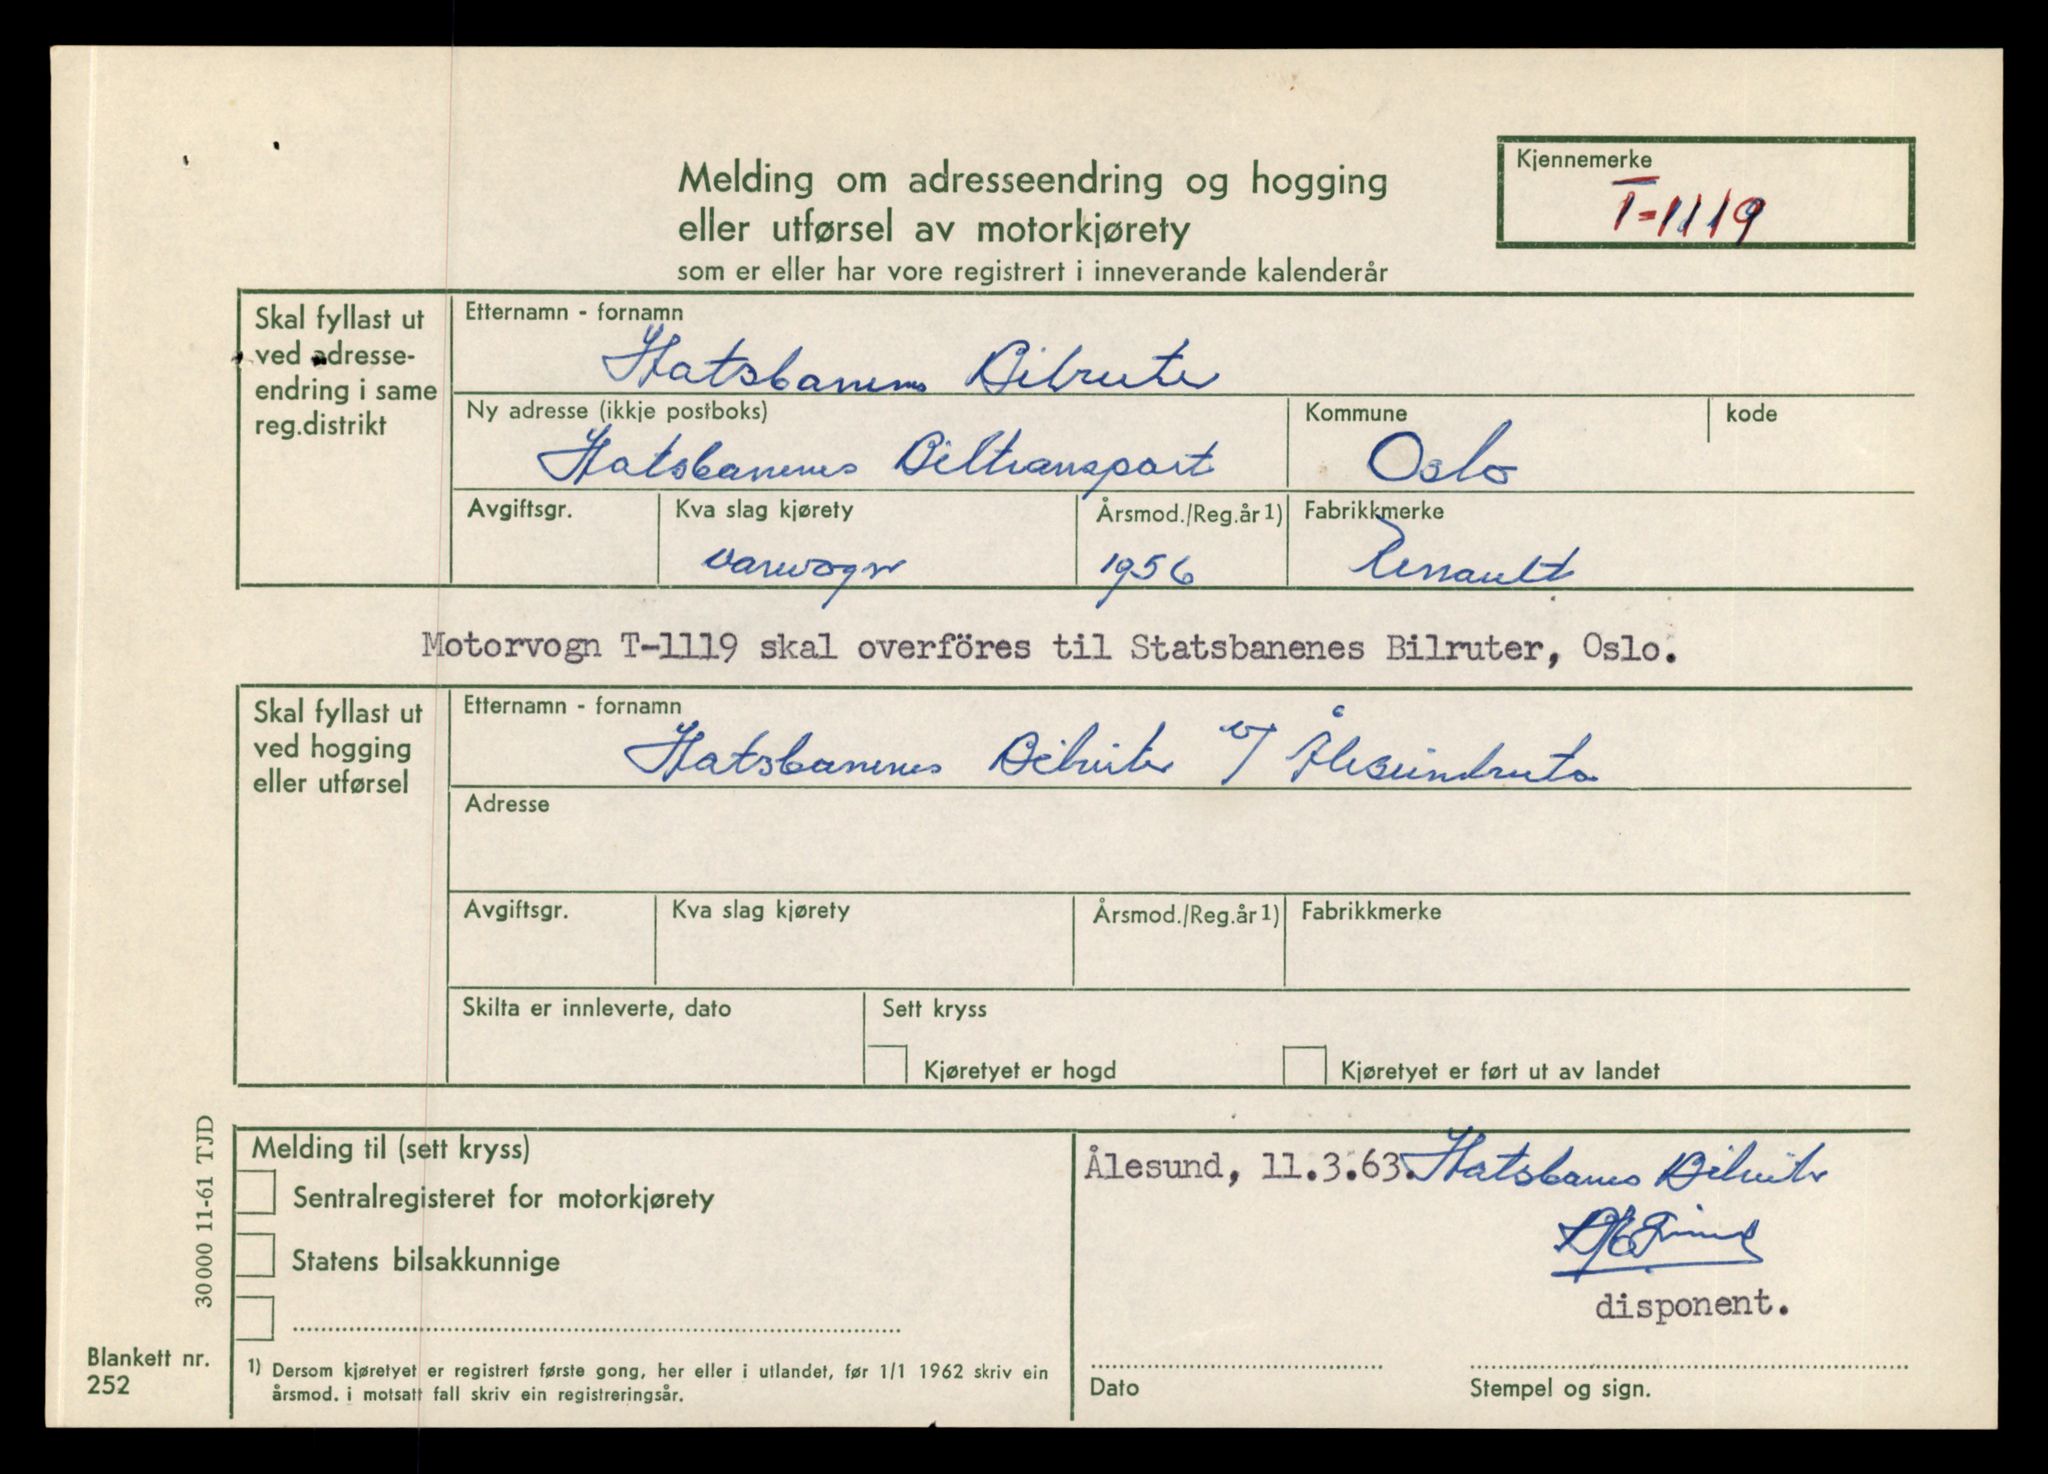 Melding om adresseendring og hogging
eller utførsel av motorkjørety
som er eller har vore registrert i inneverande kalenderår
Kjennemerke
T-1119
Skal fyllast ut
ved adresse-
endring i same
reg.distrikt
Etternamn - fornamn
Statsbanenes Bilruter
Ny adresse (ikkje postboks)
Statsbanenes Biltransport
Kommune
Oslo
kode
Avgiftsgr.
Kva slag kjørety
varevogn
Årsmod./Reg.år 1)
1956
Fabrikkmerke
Renault
Motorvogn T-1119 skal overföres til Statsbanenes Bilruter, Oslo.
Skal fyllast ut
ved hogging
eller utførsel
Etternamn - fornamn
Statsbanenes Bilruter v/ Ålesundruta
Adresse
Avgiftsgr.
Kva slag kjørety
Årsmod./Reg.år 1)
Fabrikkmerke
Skilta er innleverte, dato
Sett kryss
Kjøretyet er hogd
Kjøretyet er ført ut av landet
Melding til (sett kryss)
Sentralregisteret for motorkjørety
Statens bilsakkunnige
1) Dersom kjøretyet er registrert første gong, her eller i utlandet, før 1/1 1962 skriv ein
årsmod. i motsatt fall skriv ein registreringsår.
Ålesund, 11.3.63. Statsbanes Bilruter
disponent.
Dato
Stempel og sign.
30 000 11-61 TJD
Blankett nr.
252